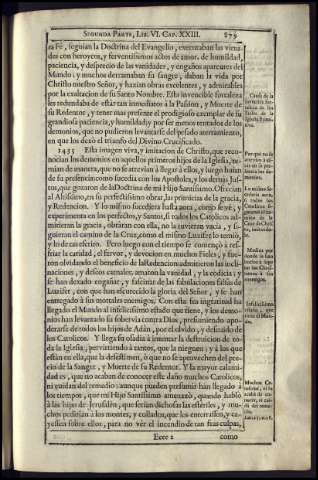 SEGUNDA PARTE, LIB. VI. CAP. XXIII. 879
ra Fè, seguian la Doctrina del Evangelio, exercitaban las virtu-
des con heroycos, y ferventissimos actos de amor, de humildad,
paciencia, y desprecio de las vanidades, y engaños aparentes del
Mundo: y muchos derramaban su sangre, daban la vida por
Christo nuestro Señor, y hazian obras excelentes, y admirables
por la exaltacion de su Santo Nombre. Esta invencible fortaleza
les redundaba de estàr tan inmediatos à la Passion, y Muerte de
su Redentor, y tener mas presente el prodigioso exemplar de su
grandiosa paciencia, y humildad: y por ser menos tentados de los
demonios, que no pudieron levantarse del pesado aterramiento,
en que los dexò el triunfo del Divino Crucificado.
1435 Esta imagen viva, y imitacion de Christo, que reco-
nocian los demonios en aquellos primeros hijos de la Iglesia, te-
mian de manera, que no se atrevian à llegar à ellos, y luego huìan
de su presencia como sucedia con los Apostoles, y los demàs Jus-
tos, que gozaron de la Doctrina de mi Hijo Santissimo. Ofrecian
al Altissimo, en su perfectissimo obrar, las primicias de la gracia,
y Redencion. Y lo mismo sucediera hasta aora, como se vè, y
experimenta en los perfectos, y Santos, si todos los Catholicos ad-
mitieran la gracia, obràran con ella, no la tuvieran vacia, y si-
guieran el camino de la Cruz, como el mismo Lucifer lo temiò,
y lo dexas escrito. Pero luego con el tiempo se començò à res-
friar la caridad, el fervor, y devocion en muchos Fieles, y fue-
ron olvidando el beneficio de la Redencion: admitieron las incli-
naciones, y deseos carnales, amaron la vanidad, y la codicia; y
se han dexado engañar, y fascinar de las fabulaciones falsas de
Lucifer, con que han obscurecido la gloria del Señor, y se han
entregado à sus mortales enemigos. Con esta fea ingratitud ha
llegado el Mundo al infelicissimo estado que tiene, y los demo-
nios han levantado su sobervia contra Dios, presumiendo apo-
derarse de todos los hijos de Adàn, por el olvido, y descuido de
los Catholicos. Y llega su osadia à intentar la destruicion de to-
da la Iglesia, pervirtiendo à tantos, que la nieguen; y à los que
estàn en ella, que la desestimen, ò que no se aprovechen del pre-
cio de la Sangre, y Muerte de su Redentor. Y la mayor calami-
dad es, que no acaban de conocer este daño muchos Catholicos,
ni cuidan del remedio; aunque pueden presumir han llegado à
los tiempos, que mi Hijo Santissimo amenazò, quando hablò
à las hijas de Jerusalèn, que serian dichosas las esteriles, y mu-
chos pedirian à los montes, y collados, que los enterrassen, y ca-
yessen sobre ellos, para no vèr el incendio de tan feas culpas,
Eeee 2 como
Por què no
Muchos Ca-